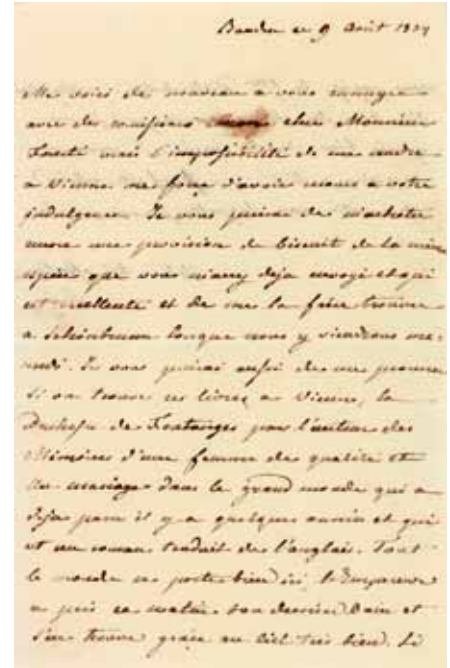 Baaden ce 9 Août 18
Me voici de nouveau a vous ennuyer
avec des comissions encore cher Monsieur
mais l'impossibilité de me rendre
a Vienne me force d'avoir recours a votre
indulgence. Je vous prierai de m'acheter
encore une provision de biscuit de la même
espèce que vous m'avez deja envoyé et qui
est excellente et de me la faire trouver
a Schönbrunn lorsque nous y viendrons mer-
credi. Je vous prierai aussi de me procurer
si on trouve ces livres a Vienne, la
Duchesse de Fontanges par l'auteur des
Mémoires d'une femme de qualité et
Un mariage dans le grand monde qui a
deja paru il y a quelques années et qui
est un roman traduit de l'anglais. Tout
le monde se porte bien ici, l'Empereur
a pris ce matin son dernier bain et
s'en trouve grâce au ciel très bien. Si